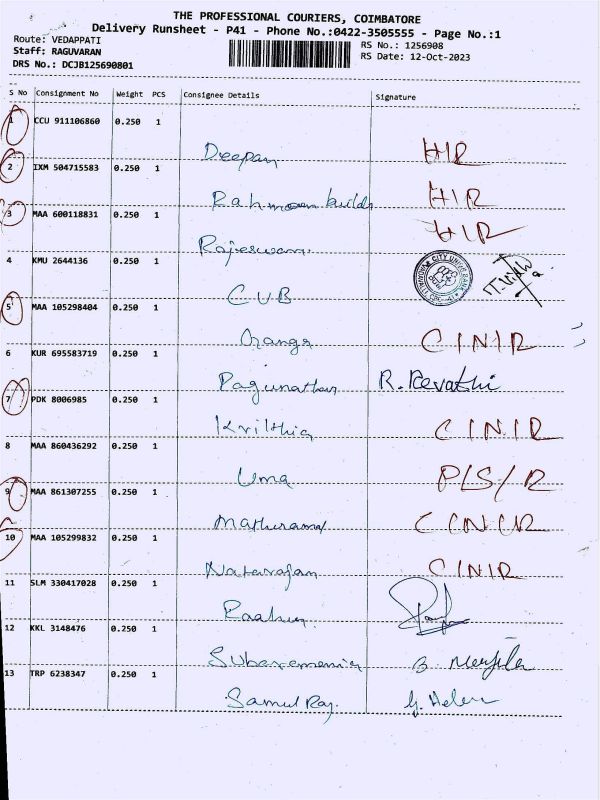 THE PROFESSIONAL COURIERS, COIMBATORE
Delivery Runsheet - P41 - Phone No.:0422-3505555 - Page No.:1
Route: VEDAPPATI
Staff: RAGUVARAN
DRS No.: DCJB125690801
RS No.: 1256908
RS Date: 12-Oct-2023
S No Consignment No Weight PCS Consignee Details Signature
1 CCU 911106860 0.250 1
Deepan HIR
2 IXM 504715583 0.250 1
Rahmoon builds HIR
3 MAA 600118831 0.250 1
Rajeswari HIR
4 KMU 2644136 0.250 1
CUB
CITY UNION BANK
5 MAA 105298404 0.250 1
Orange CINIR
6 KUR 695583719 0.250 1
Ragunathan R. Revathi
7 PDK 8006985 0.250 1
Krithia CINIR
8 MAA 860436292 0.250 1
Uma P/S/R
9 MAA 861307255 0.250 1
CINIR
10 MAA 105299832 0.250 1
Natarajan CINIR
11 SLM 330417028 0.250 1
12 KKL 3148476 0.250 1
13 TRP 6238347 0.250 1
Samul Raj. G. Helen